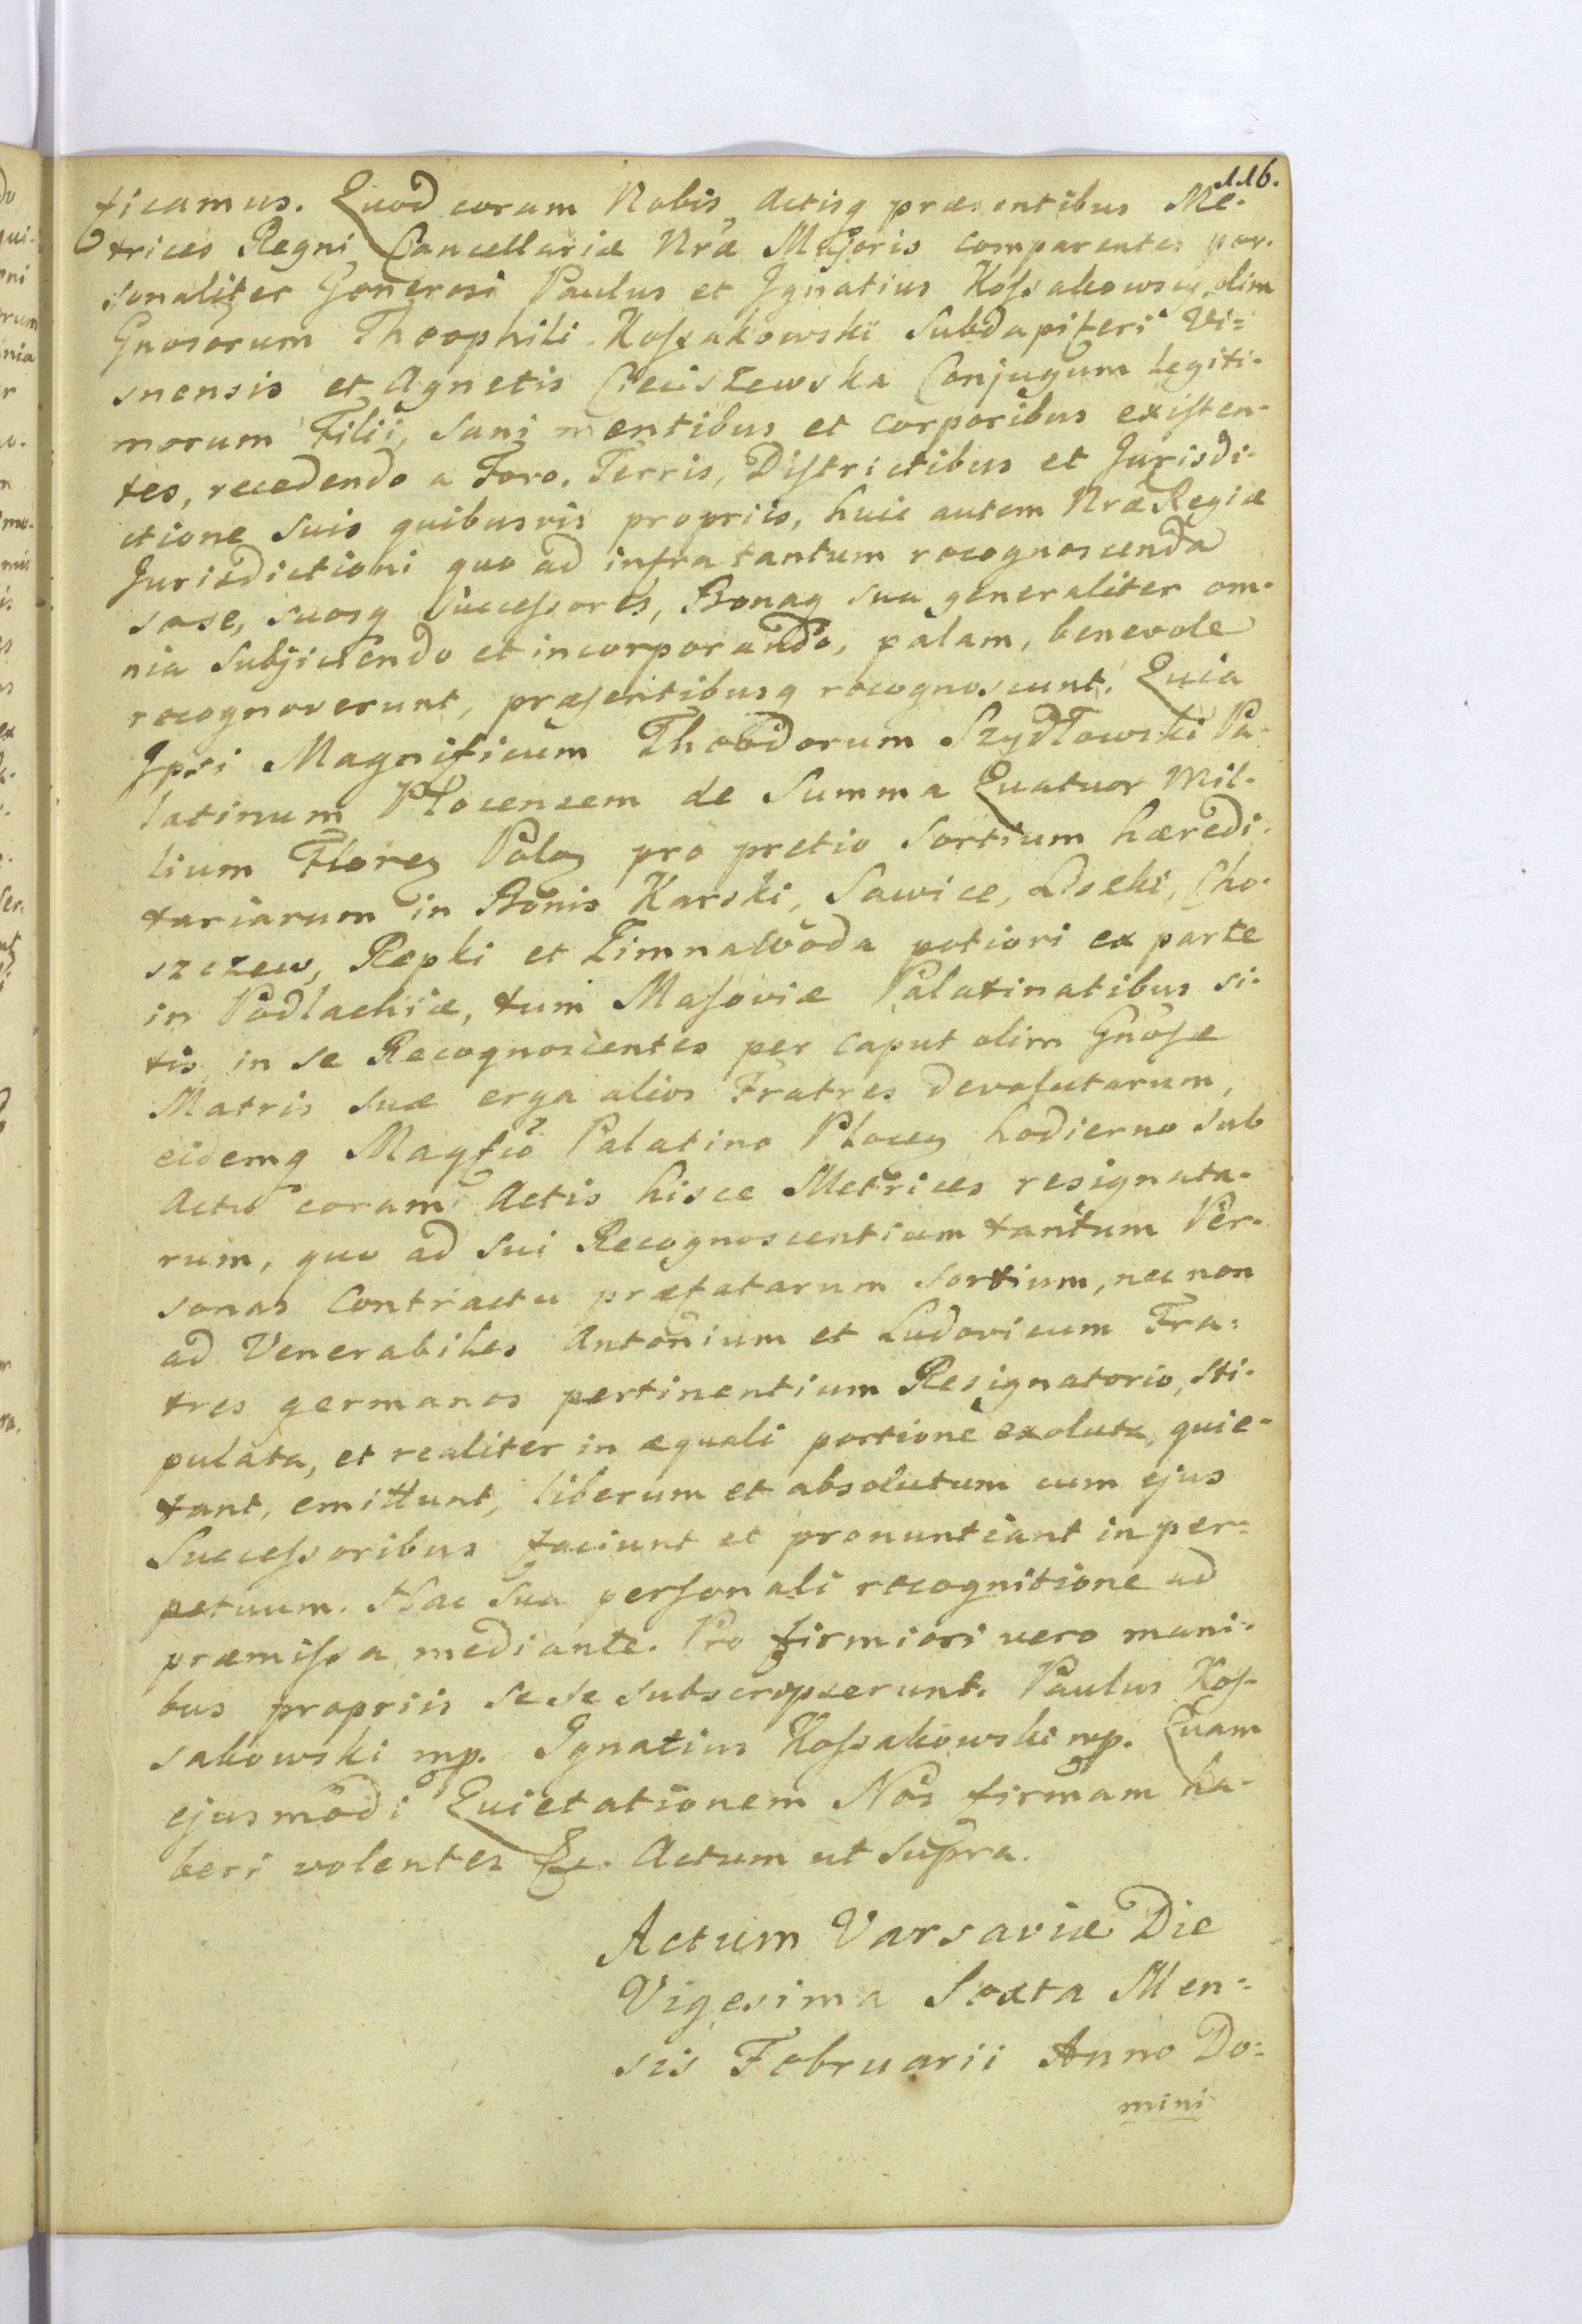 116.
ficamus. Quod coram Nobis, Actisq præsentibus Me-
trices Regni Cancellariæ Nræ Majoris comparentes per-
sonaliter Generosi Paulus et Ignatius Koſsakowscy, olim
Gnosorum Theophili Koſsakowski Subdapiferi Vi=
snensis et Agnetis Cieciszewska Conjugum legiti-
morum Filii, Sani mentibus et corporibus exiſten-
tes, recedendo a Foro, Terris, Diſtrictibus et Jurisdi-
ctione suis quibusvis propriis, huic autem Nræ Regiæ
Jurisdictioni quo ad infra tantum recognoscenda
sese, suosq succeſsores, Bonaq sua generaliter om-
nia Subjiciendo et incorporando, palam, benevole
recognoverunt, præſentibusq recognoscunt. Quia
Ipsi Magnificum Theodorum Szydłowski Pa-
latinum Plocensem de Summa Quatuor Mil-
lium Floreg Polog pro pretio Sortium hæredi-
tariarum in Bonis Karski, Sawice, Dseki, Cho-
szczew, Repki et Zimnawoda potiori ex parte
in Podlachiæ, tum Maſoviæ Palatinatibus si-
tis, in se Recognoscentes per caput olim Gnoſe
Matris suæ erga alios Fratres devolutarum,
eidemq Magfco Palatino Ploceg hodierno sub
Actu coram Actis hisce Metrices resignata-
rum, quo ad sui Recognoscentium tantum Per-
sonas Contractu præfatarum sortium, nec non
ad Venerabiles Antonium et Ludovicum Fra-
tres germanos pertinentium Resignatorio, sti-
pulata, et realiter in æquali portione exoluta, quie-
tant, emittunt, liberum et absolutum cum ejus
Succeſsoribus faciunt et pronuntiant in per-
petuum. Hac sua perſonali recognitione ad
præmiſsa mediante. Pro firmiori vero mani-
bus propriis sese subscripserunt. Paulus Koſ-
sakowski mp. Ignatius Koſsakowski mp. Quam
ejusmodi Quietationem Nos firmam ha-
beri volentes &c. Actum ut Supra.
Actum Varsaviæ Die
Vigesima Sexta Men-
sis Februarii Anno Do=
mini